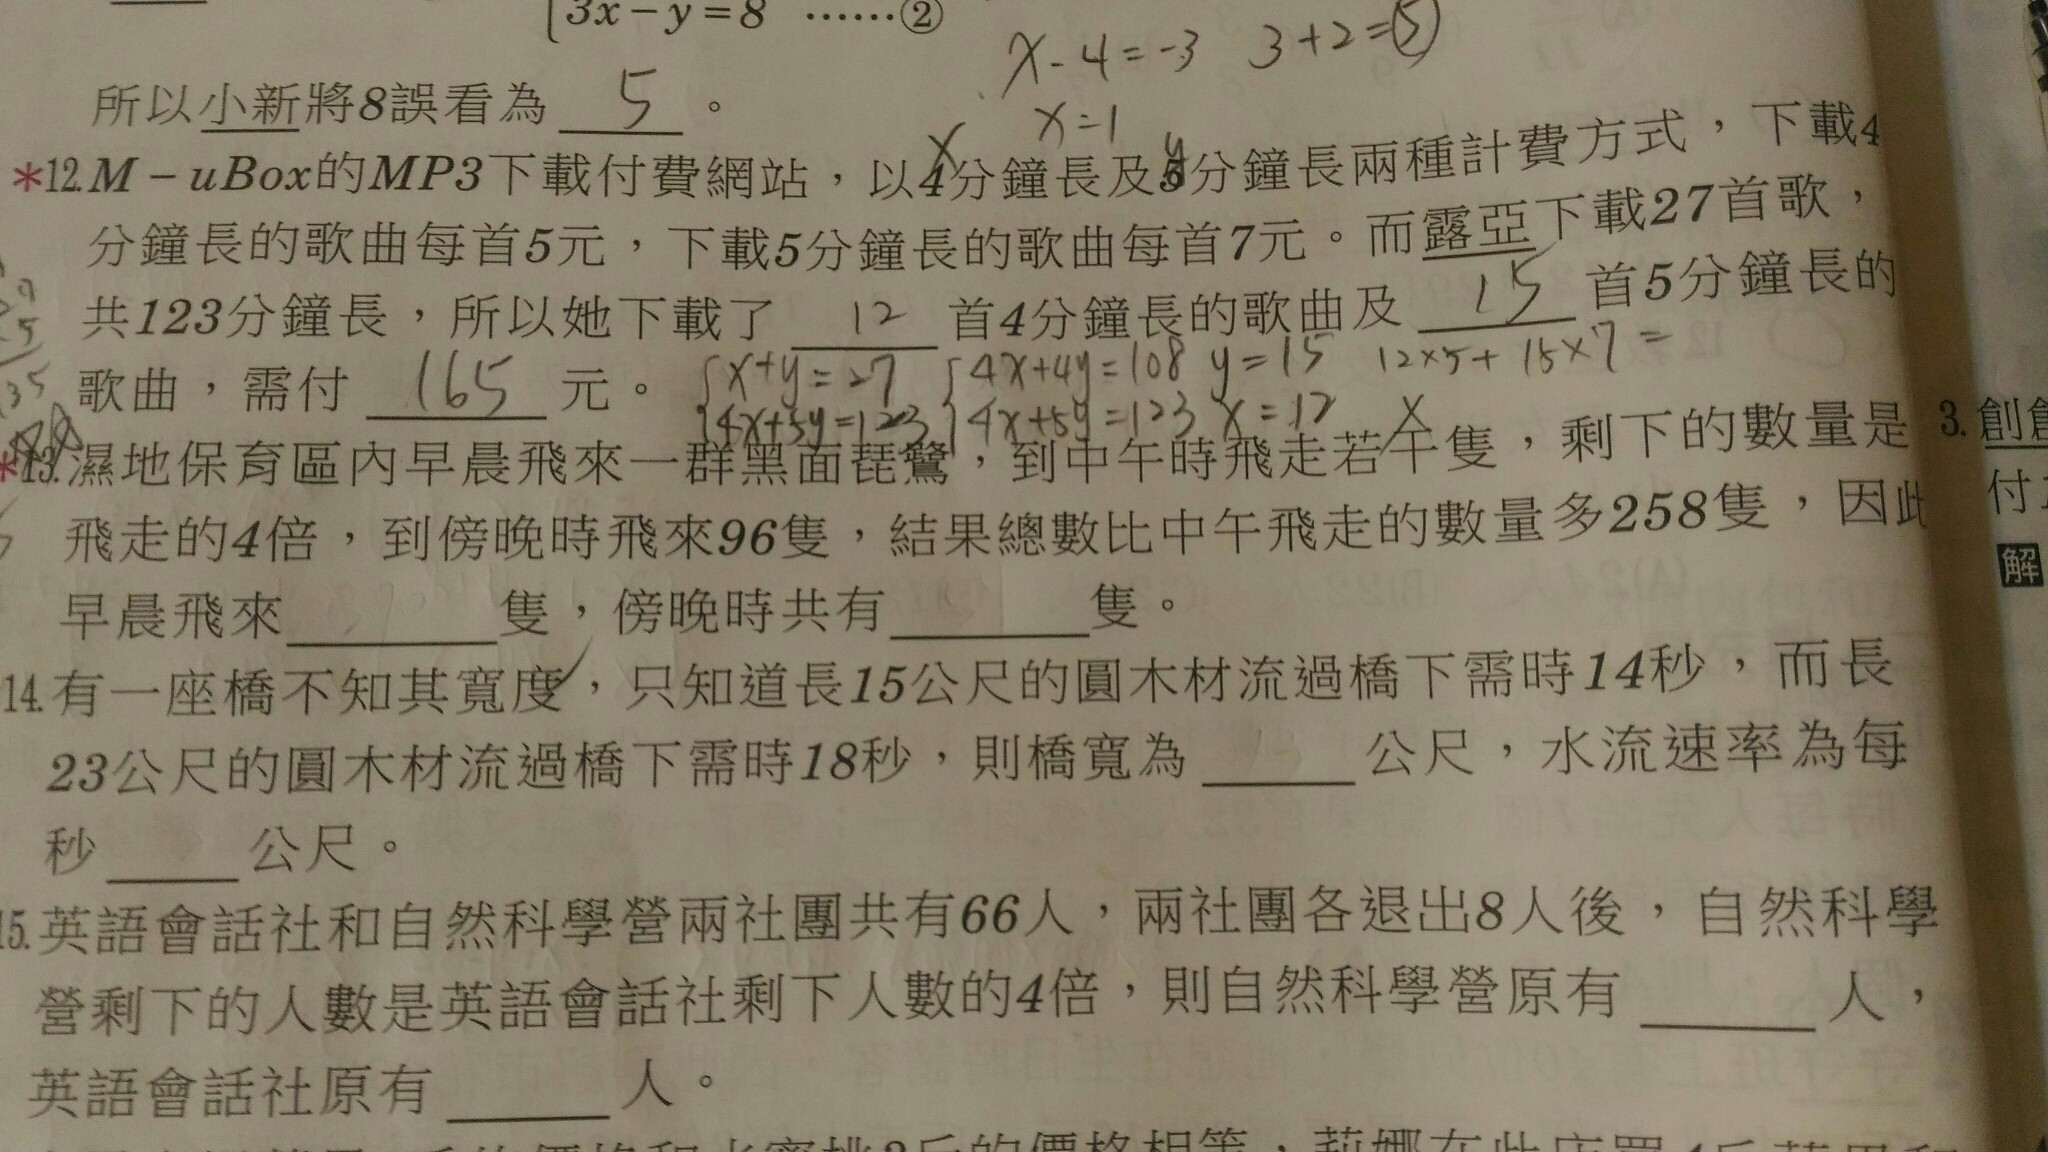 3x－y＝8 ……②
x-4=-3 3+2=5
所以小新將8誤看為 5 。
x=1
x y
*12.M－uBox的MP3下載付費網站，以4分鐘長及5分鐘長兩種計費方式，下載4
分鐘長的歌曲每首5元，下載5分鐘長的歌曲每首7元。而露亞下載27首歌，
共123分鐘長，所以她下載了 12 首4分鐘長的歌曲及 15 首5分鐘長的
歌曲，需付 165 元。 x+y=27 4x+4y=108 y=15 12×5+15×7=
4x+5y=123 4x+5y=123 x=12 x
*13.濕地保育區內早晨飛來一群黑面琵鷺，到中午時飛走若干隻，剩下的數量是
飛走的4倍，到傍晚時飛來96隻，結果總數比中午飛走的數量多258隻，因此
早晨飛來＿＿＿隻，傍晚時共有＿＿＿隻。
14.有一座橋不知其寬度，只知道長15公尺的圓木材流過橋下需時14秒，而長
23公尺的圓木材流過橋下需時18秒，則橋寬為＿＿＿公尺，水流速率為每
秒＿＿＿公尺。
15.英語會話社和自然科學營兩社團共有66人，兩社團各退出8人後，自然科學
營剩下的人數是英語會話社剩下人數的4倍，則自然科學營原有＿＿＿人，
英語會話社原有＿＿＿人。
3.創創
付
解